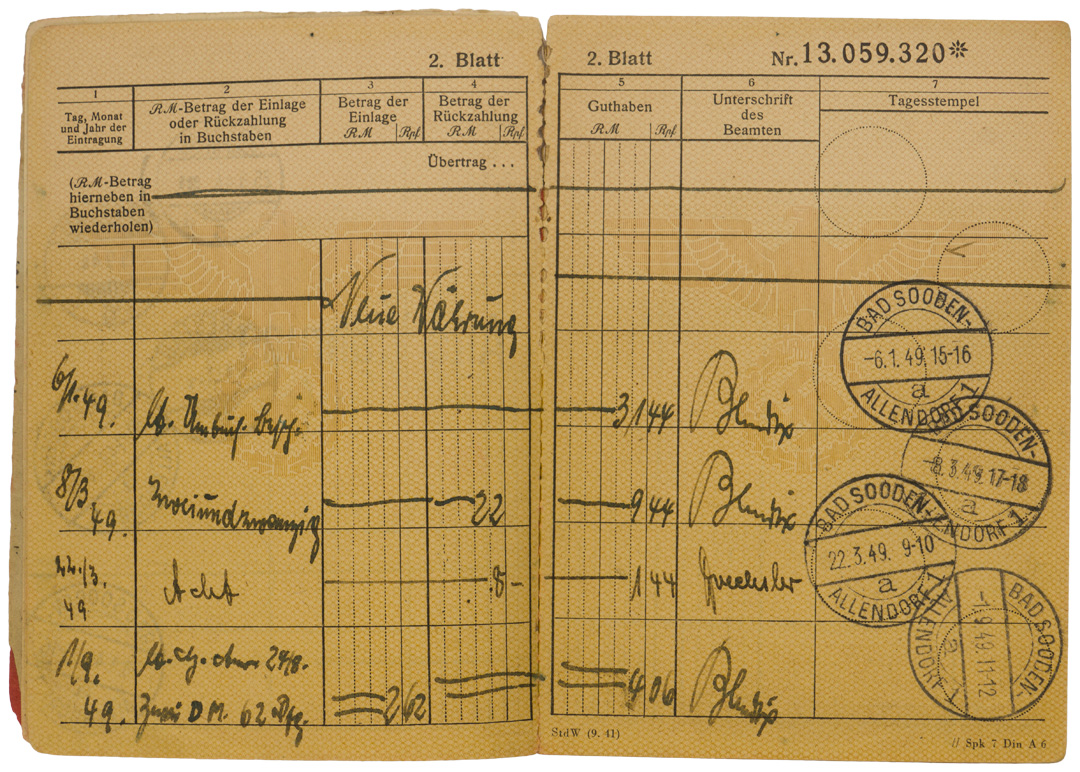 2. Blatt
1
2
3
4
Tag, Monat
und Jahr der
Eintragung
RM-Betrag der Einlage
oder Rückzahlung
in Buchstaben
Betrag der
Einlage
RM Rpf
Betrag der
Rückzahlung
RM Rpf
Übertrag . . .
(RM-Betrag
hierneben in
Buchstaben
wiederholen)
Neue Währung
6/1. 49.
8/3 49. Zweiundzwanzig 22
22./3. 49 Acht 8 –
1/9. 49. Zwei DM. 62 Pfg. 2 62
2. Blatt Nr. 13.059.320*
5
6
7
Guthaben
RM Rpf
Unterschrift
des
Beamten
Tagesstempel
31 44
9 44
1 44
4 06
BAD SOODEN-
-6.1.49.15-16
a
ALLENDORF 1
BAD SOODEN-
-8.3.49.17-18
a
ALLENDORF 1
BAD SOODEN-
22.3.49. 9-10
a
ALLENDORF 1
BAD SOODEN-
-1.9.49.11-12
a
ALLENDORF 1
StdW (9. 41)
// Spk 7 Din A 6